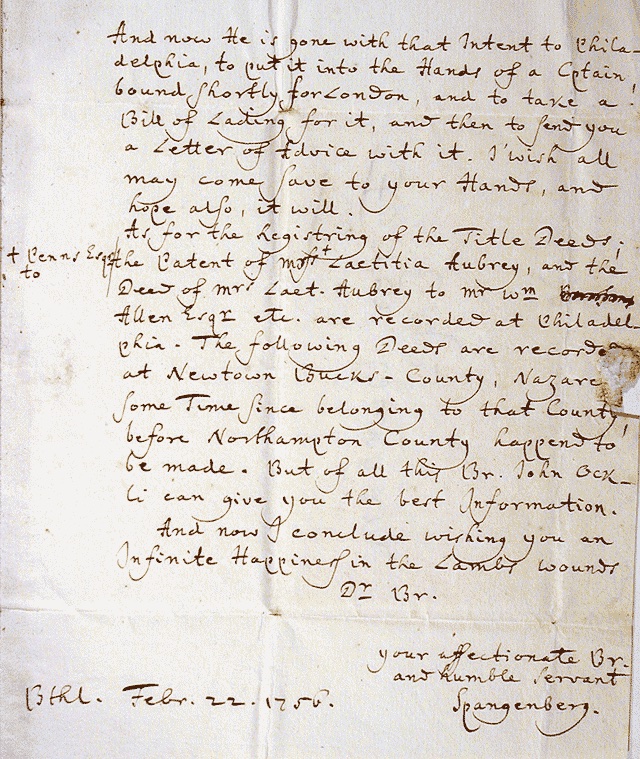 And now He is gone with that Intent to Phila-
delphia, to put it into the Hands of a Cptain,
bound shortly for London, and to take a
Bill of Lading for it, and then to send you
a Letter of Advice with it. I wish all
may come save to your Hands, and
hope also, it will.
As for the Registring of the Title Deeds;
+ Penns Esqr
to
the Patent of + Laetitia Aubrey, and the
Deed of mrs Laet. Aubrey to mr Wm
Allen Esqr etc. are recorded at Philadel
phia. The following Deeds are recorded
at Newtown Bucks-County, Nazare
some Time since belonging to that County,
before Northampton County happend to
be made. But of all this Br. John Ock-
li can give you the best Information.
And now I conclude wishing you an
Infinite Happiness in the Lambs wounds
Dr Br.
your affectionate Br.
and humble servant
Spangenberg.
Bthl. Febr. 22. 1756.